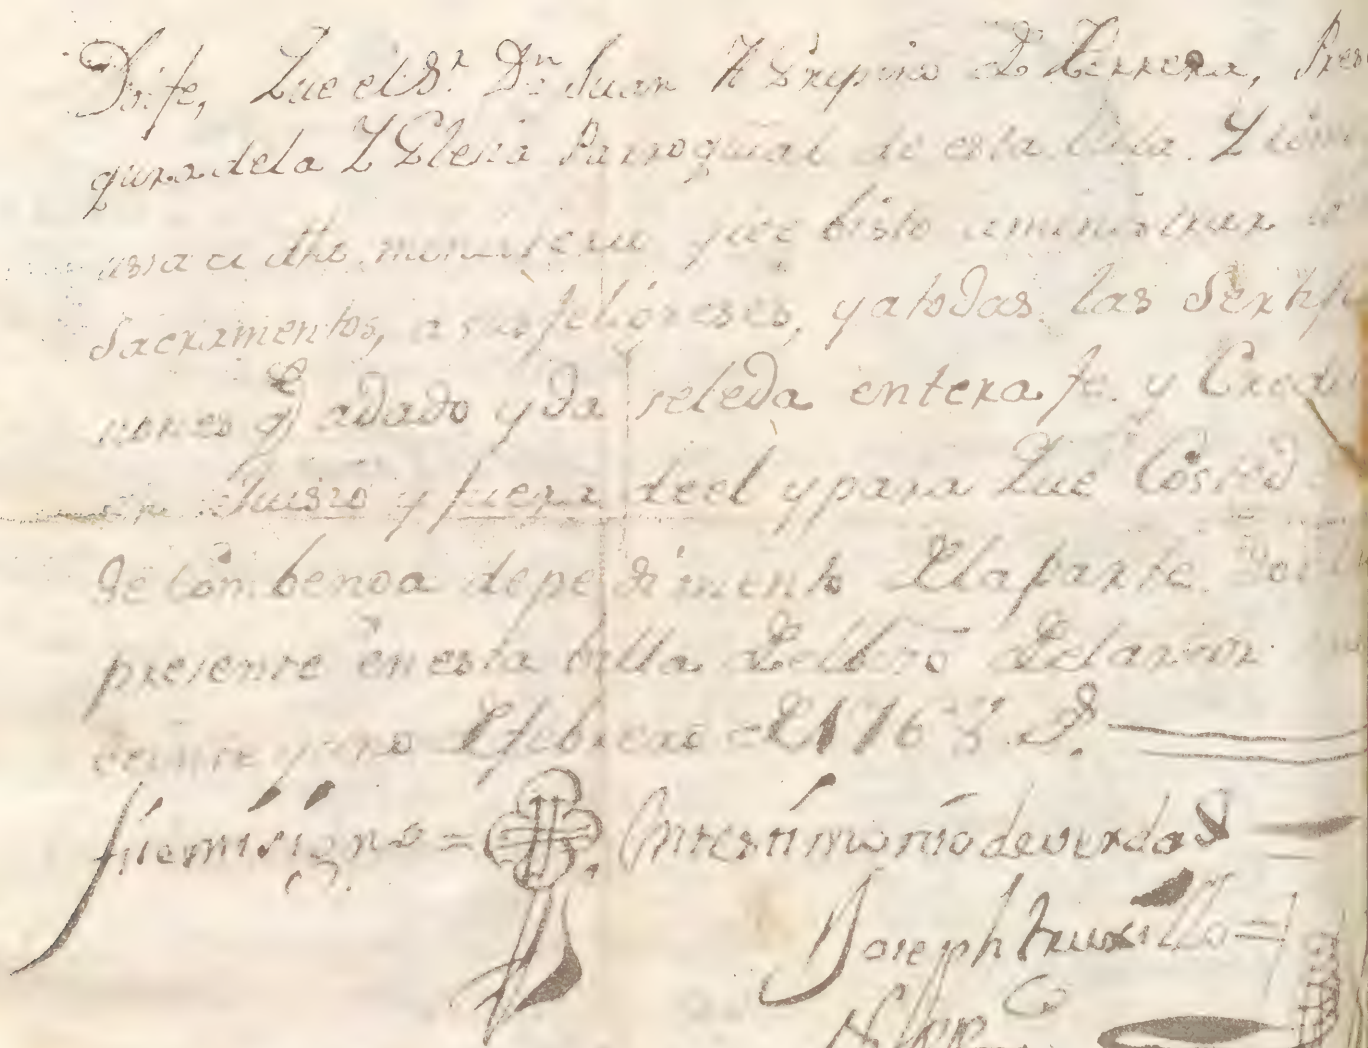 Doi fe, Que el Sr. Dn Juan Agripino de Herrera, Pres
qura de la Yglesia Parroquial de esta billa. Y
a dho. ministerio y ee bisto aministrar
Sacramentos, a sus feligreses, y a todas. las Sertifi
nones q adado y da sele da entera fe. y Credi
en Juisio y fuera de el y para Que Coste d
de Combenga de pedimento de la parte. Doi
presente en esta billa de
beinte y uno de febrero de 1768. D.
fise mi signo = en testimonio de verdad
Joseph truxillo =